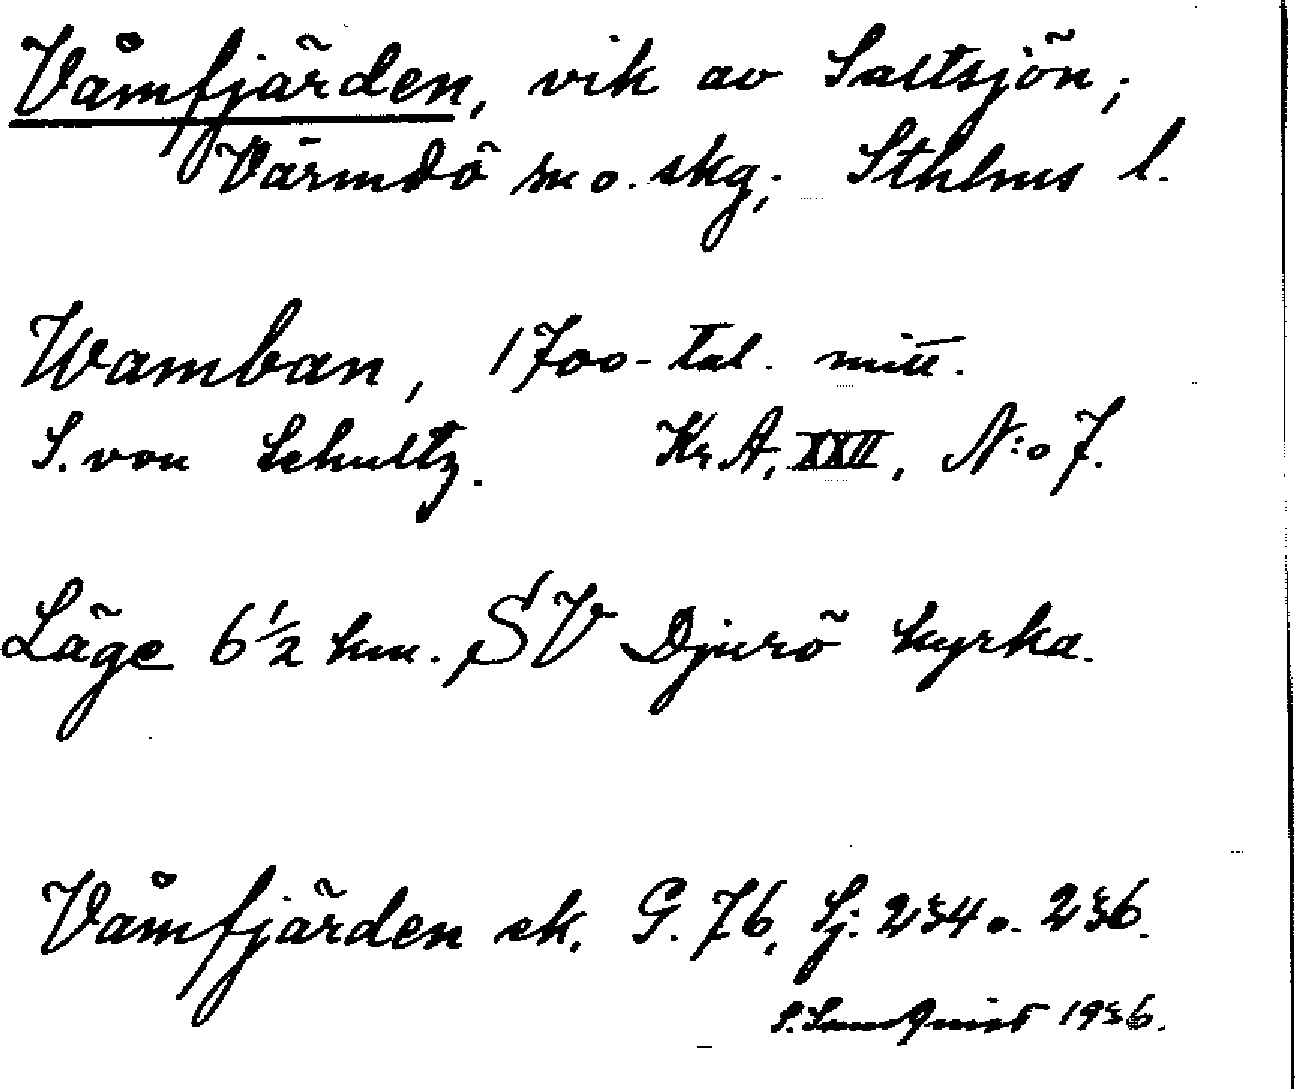 Våmfjärden, vik av Saltsjön;
Värmdö sn o. skg; Sthlms l.
Wamban, 1700-tal. mitt.
S. von Schultz. Kr.A, XXII, N:o 7.
Läge 6½ km. SV Djurö kyrka.
Våmfjärden ek. G. 76, Sj. 234 o. 236.
S. 1936.